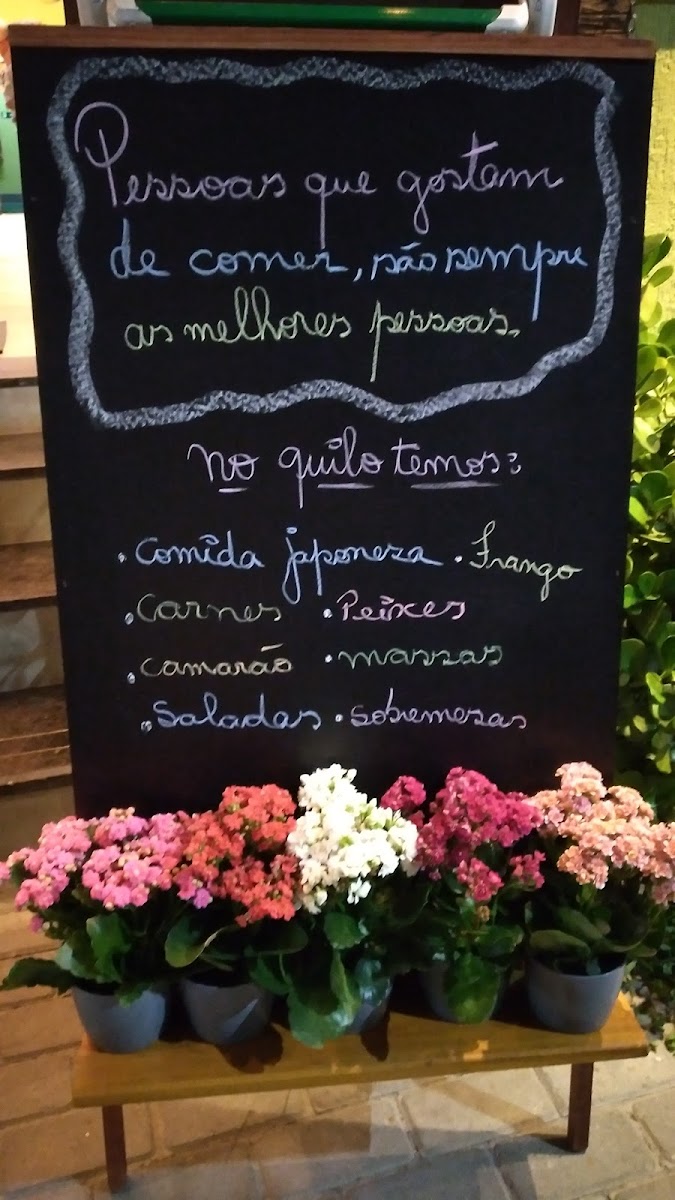 Pessoas que gostam
de comer, são sempre
as melhores pessoas.
no quilo temos:
. Comida japoneza . Frango
. Carnes . Peixes
. Camarão . massas
. Saladas . sobremesas